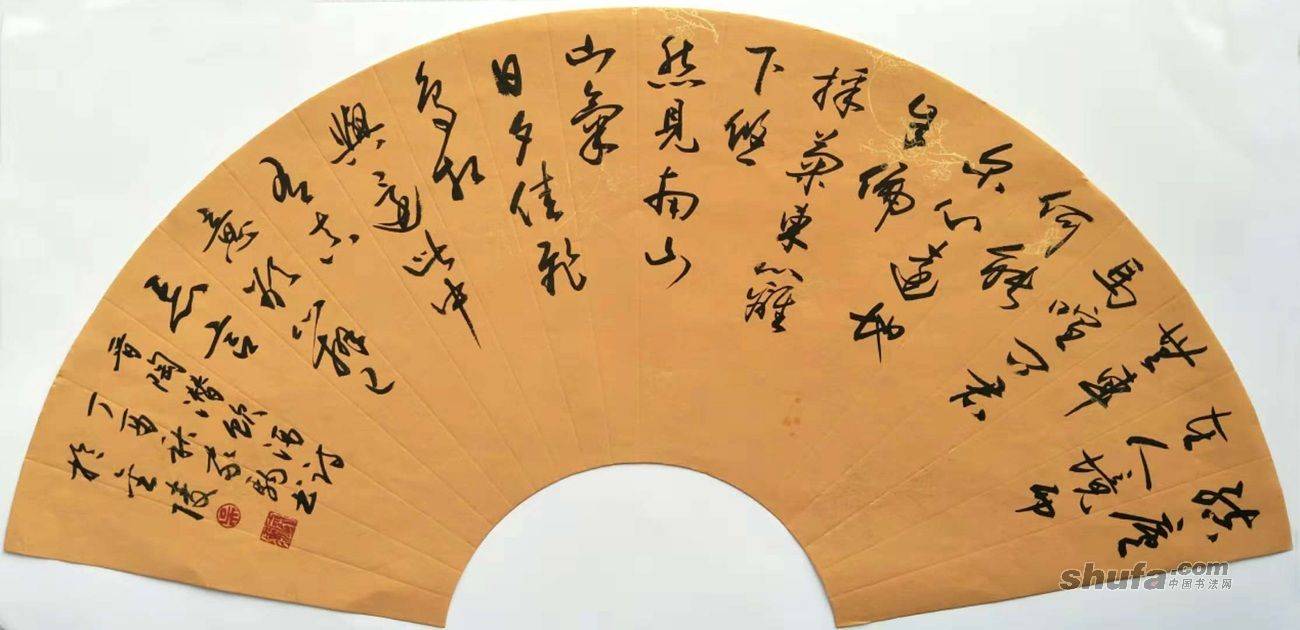 結廬
在人境而
無車
馬喧問君
何能
尔心遠地
自偏
採菊東籬
下悠
然見南山
山氣
日夕佳飛
鳥相
與還此中
有真
意欲辨已
忘言
晋陶潛飲酒詩
丁酉秋家駒書
於金陵
shufa.com
中国书法网